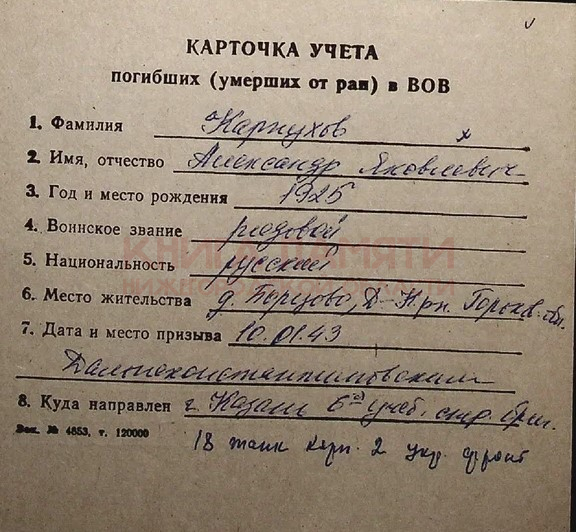 КАРТОЧКА УЧЕТА
погибших (умерших от ран) в ВОВ
1. Фамилия Карпухов
2. Имя, отчество Александр Яковлевич
3. Год и место рождения 1925
4. Воинское звание рядовой
5. Национальность русский
6. Место жительства д. Борцово, Д-К рн. Горьк. обл.
7. Дата и место призыва 10.01.43
Дальнеконстантиновским
8. Куда направлен г. Казань 6 учеб. стр. бриг.
Зек. № 4853, т. 120000
18 танк корп. 2 укр. фронт
КНИГА ПАМЯТИ
НИЖЕГОРОДСКОЙ ОБЛАСТИ